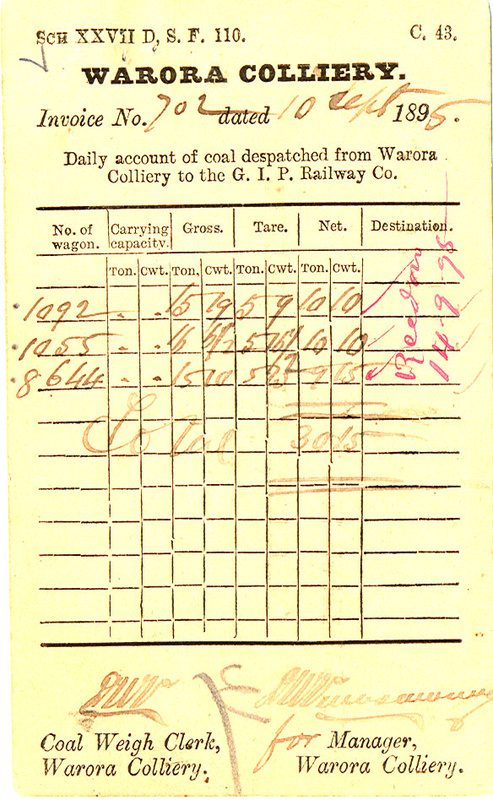 SCH XXVII D, S. F. 110. C. 43.
WARORA COLLIERY.
Invoice No. 702 dated 10 Sept 1895.
Daily account of coal despatched from Warora
Colliery to the G. I. P. Railway Co.
No. of wagon. Carrying capacity. Gross. Tare. Net. Destination.
Ton. Cwt. Ton. Cwt. Ton. Cwt. Ton. Cwt.
1092 " " 15 19 5 9 10 10
1055 " " 16 5 10 10
8644 " " 15 10 5 9 15
Total 30 15
14-9-95
Coal Weigh Clerk,
Warora Colliery.
for Manager,
Warora Colliery.